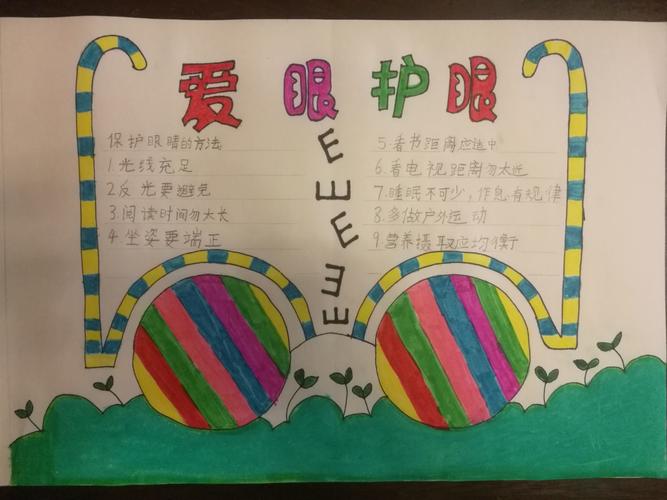 爱眼护眼
保护眼睛的方法
1.光线充足
2.反光要避免
3.阅读时间勿大长
4.坐姿要端正
E
Ш
E
Ǝ
Ш
5.看书距离应适中
6.看电视距离勿太远
7.睡眠不可少,作息有规律
8.多做户外运动
9.营养摄取应均衡